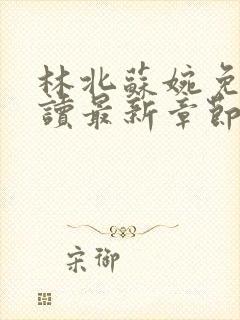 林北蘇婉免
讀最新章節
宋御